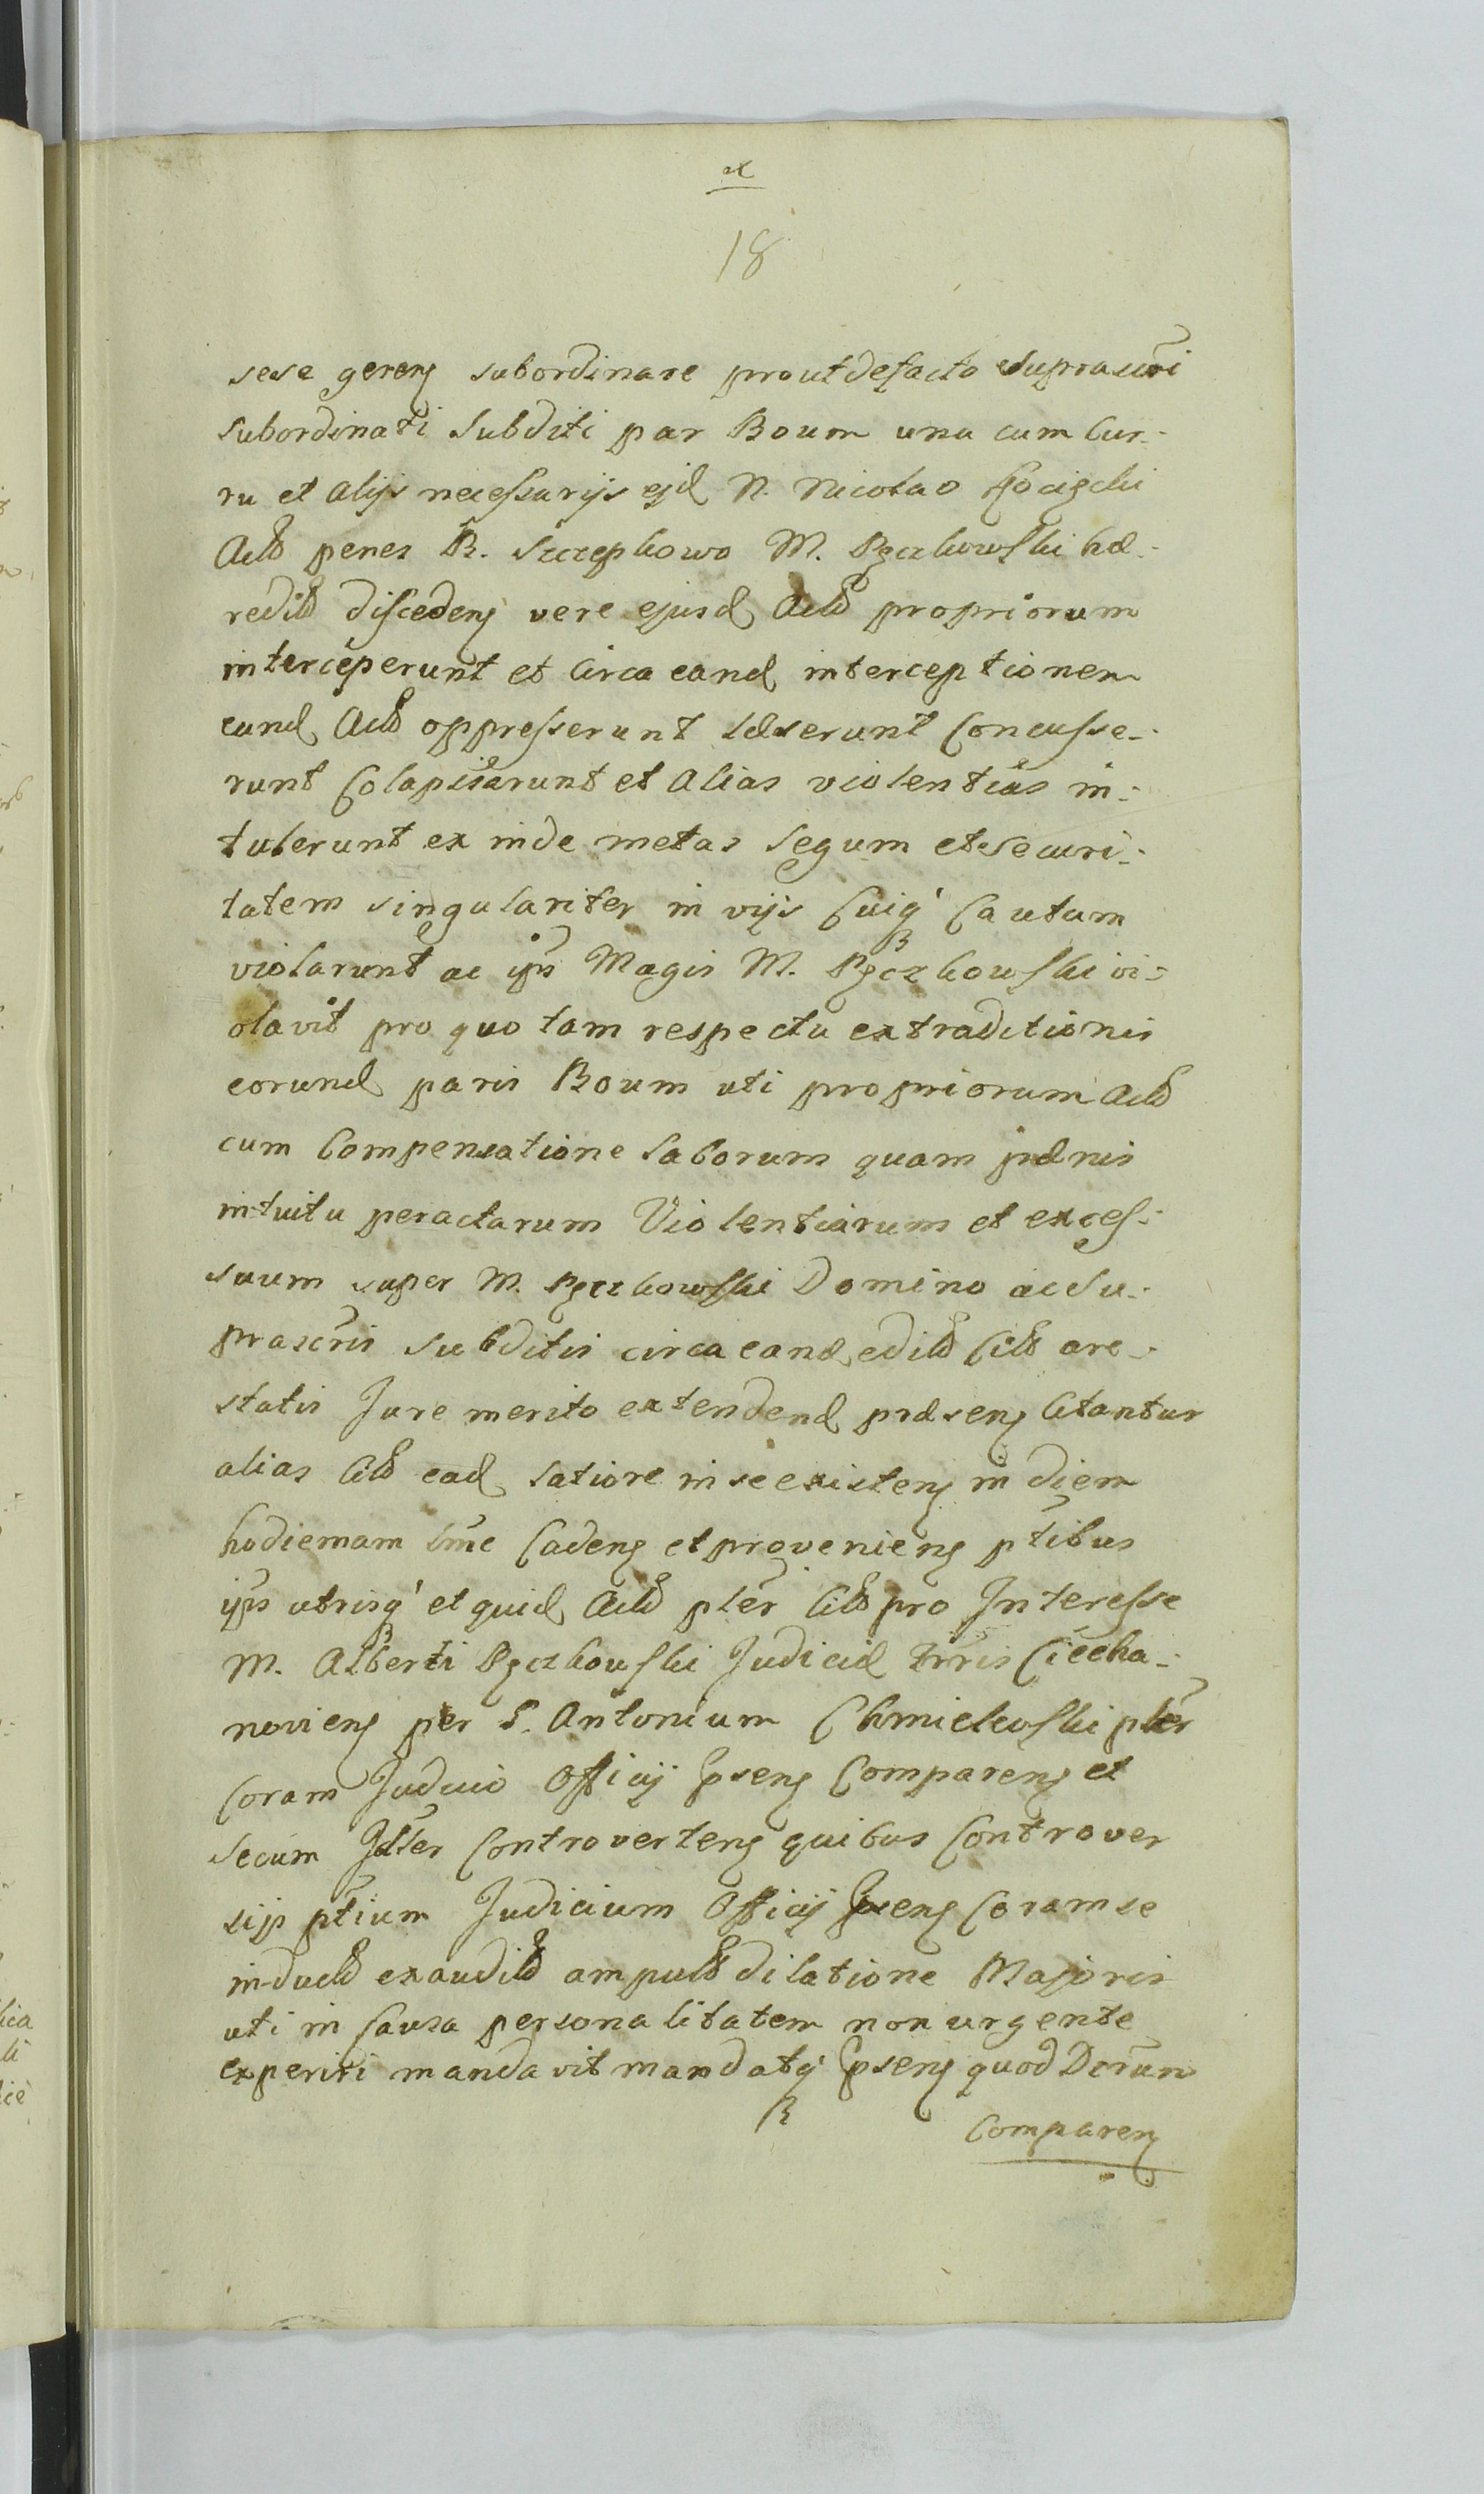 18
sese gereng subordinare prout defacto suprascri
subordinati Subditi par Boum una cum Cur-
ru et alijs necessarijs ejd N. Nicolao
Actb penes B. Szczepkowo M. Pęczkowski hæ-
reditb discedeng vere ejusd Actb propriorum
interceperunt et circa eand interceptionem
eund Actb oppresserunt læserunt Concusse-
runt Colapisarunt et alias violentias in-
tulerunt ex inde metas Legum et securi-
tatem singulariter in vijs Cuiq Cautam
violarunt ac ips Magis M. Pęczkowski vi-
olavit pro quo tam respectu extraditionis
eorund paris Boum uti propriorum Actb
cum Compensatione Laborum quam pænis
intuitu peractarum Violentiarum et exces-
suum super M. Pęczkowski Domino ac Su-
prascris Subditis circa eand editb Citb are-
statis Jure merito extendend præseng Citantur
alias Citb ead latiore in se existeng in diem
hodiernam lme Cadeng et provenieng ptibus
ips utrisq et quid Actb pler Citb pro Interesse
M. Alberti Pęczkowski Judicid trris Ciecha-
novieng per G. Antonium Chmielewski pler
Coram Judicio Officij pseng Compareng et
secum Jdter Controverteng quibus Controver
sijs ptium Judicium Officij pseng Coram se
inductb exauditb amputb dilatione Majoris
uti in Causa personalitatem non urgente
experiri mandavit mandatq pseng quod Dorum
Compareng